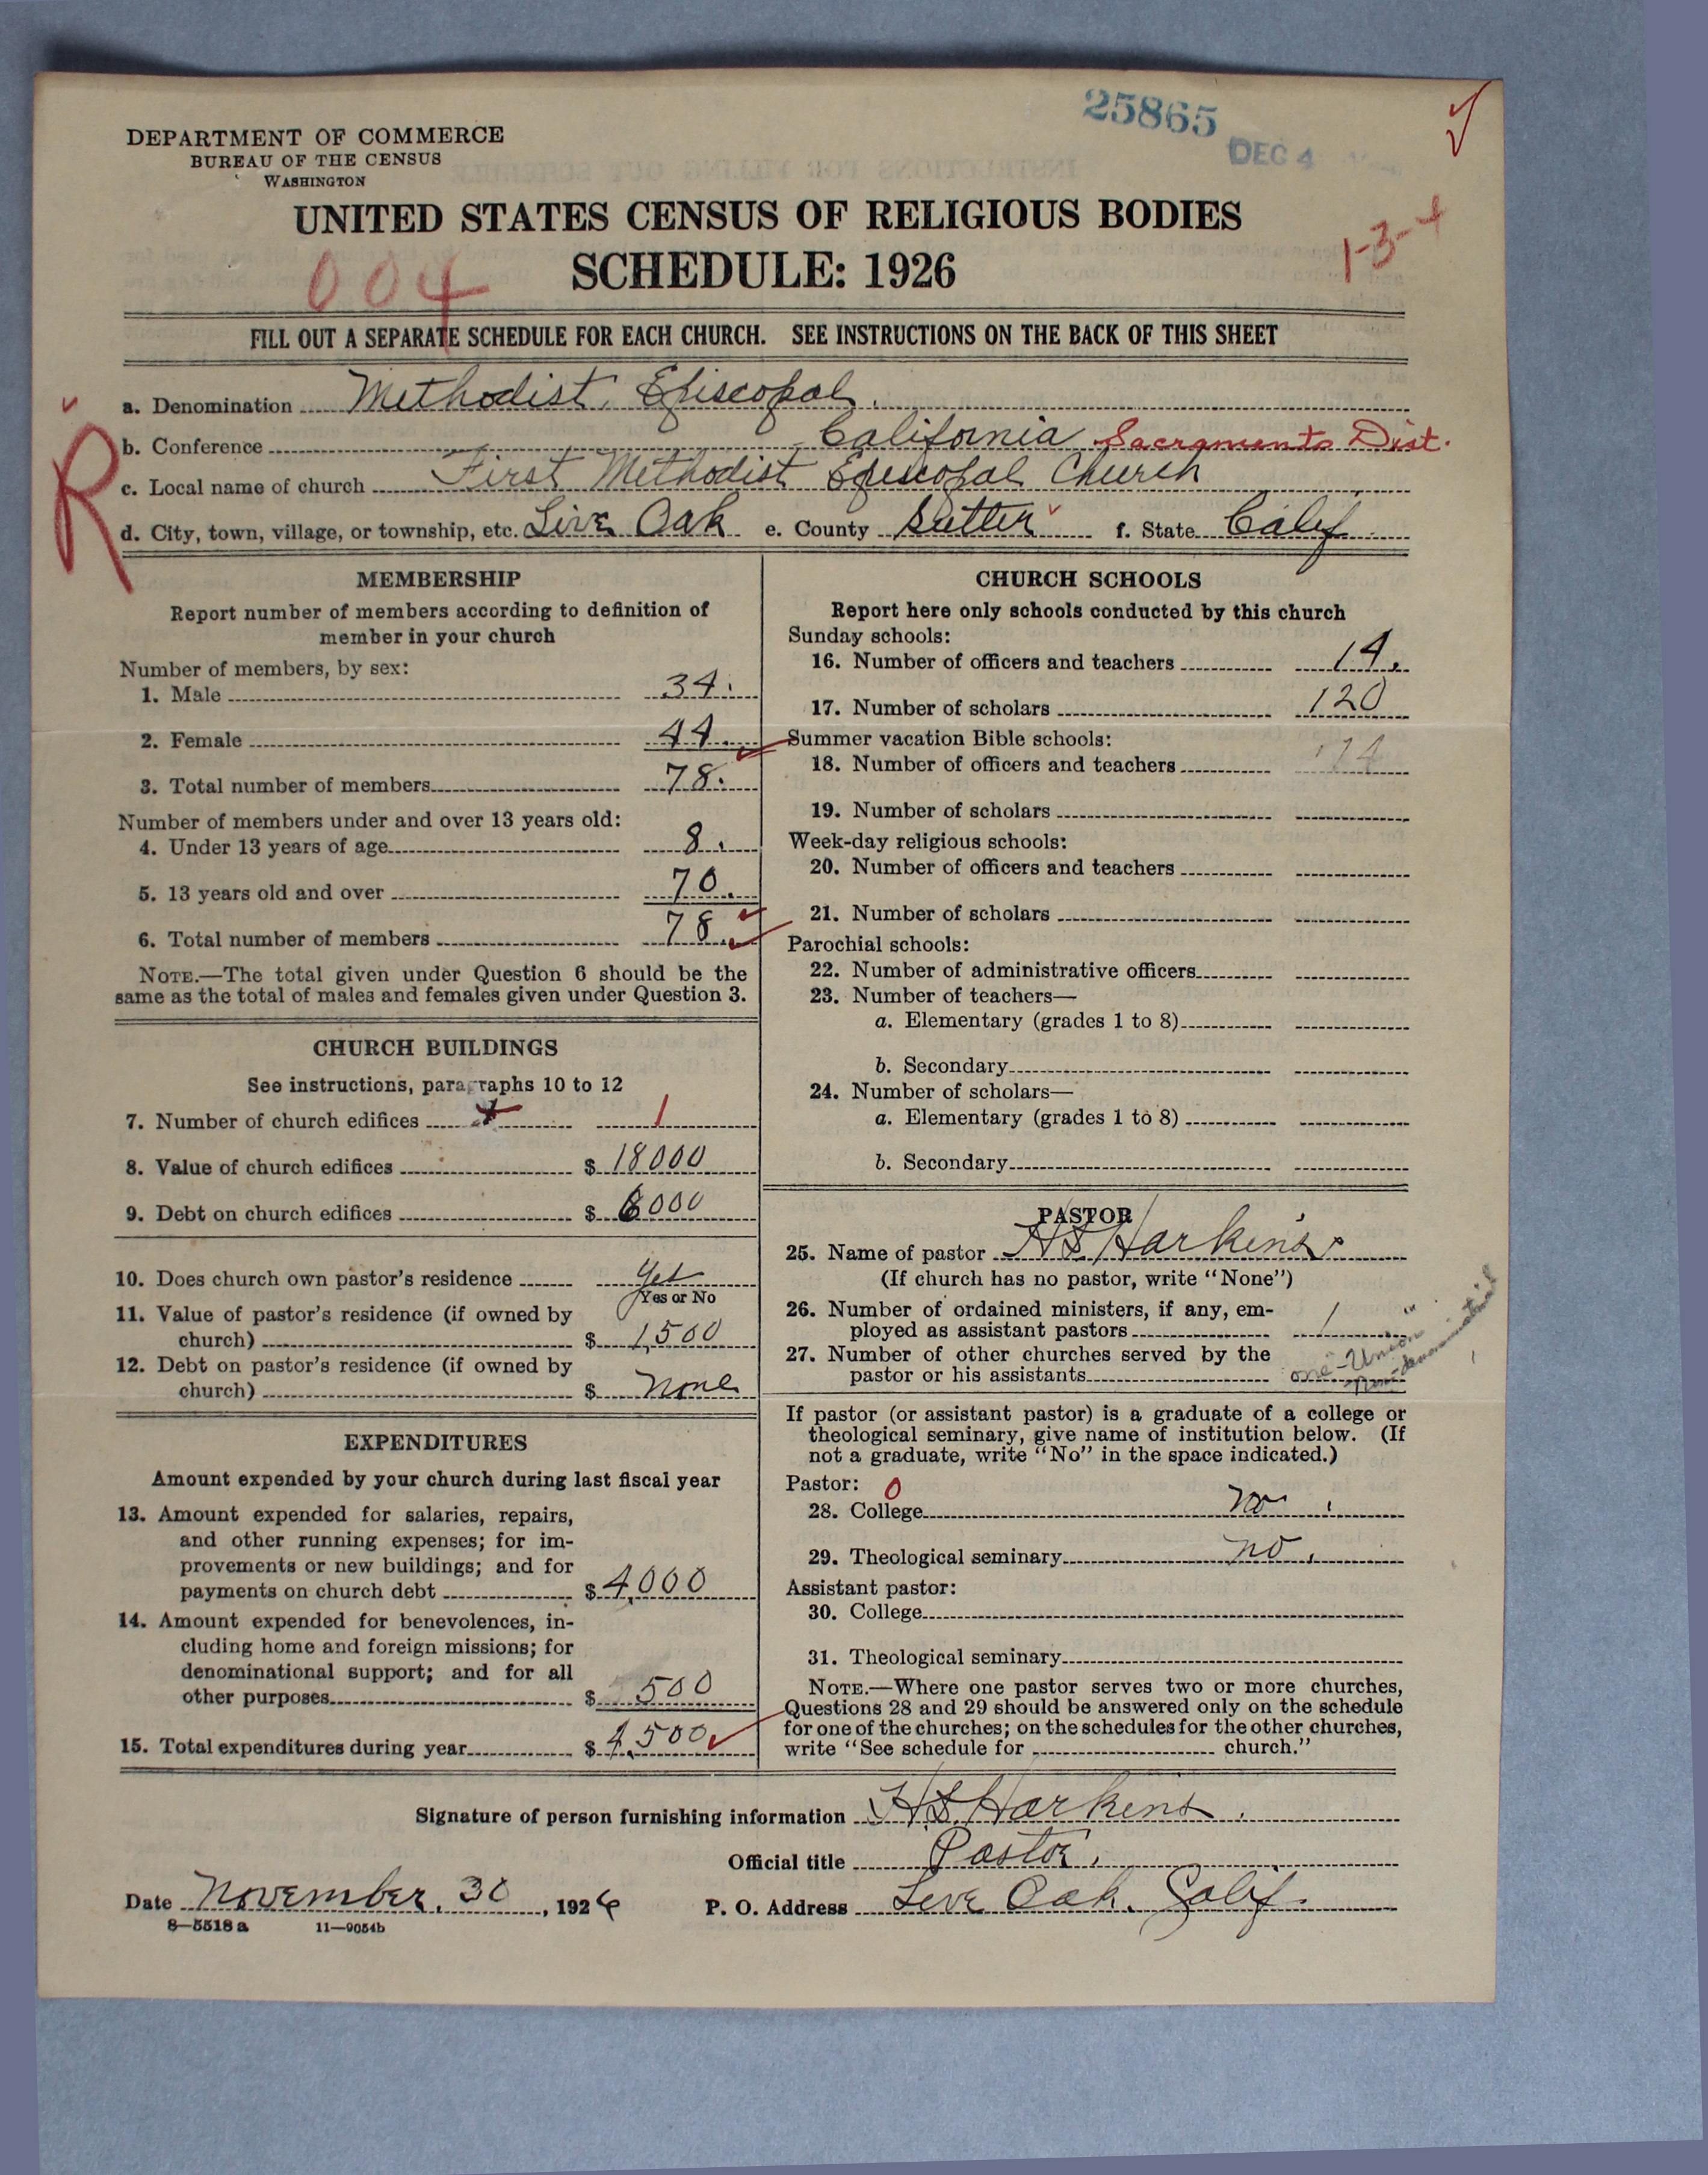 25865
DEC 4
DEPARTMENT OF COMMERCE
BUREAU OF THE CENSUS
WASHINGTON
UNITED STATES CENSUS OF RELIGIOUS BODIES
1-3-4
004
SCHEDULE: 1926
FILL OUT A SEPARATE SCHEDULE FOR EACH CHURCH. SEE INSTRUCTIONS ON THE BACK OF THIS SHEET
R
a. Denomination Methodist Episcopal.
b. Conference California Sacramento Dist.
c. Local name of church First Methodist Episcopal Church
d. City, town, village, or township, etc. Live Oak e. County Sutter f. State Calif
MEMBERSHIP
Report number of members according to definition of
member in your church
Number of members, by sex:
1. Male 34.
2. Female 44.
3. Total number of members 78.
Number of members under and over 13 years old:
4. Under 13 years of age 8.
5. 13 years old and over 70.
6. Total number of members 78.
NOTE.—The total given under Question 6 should be the
same as the total of males and females given under Question 3.
CHURCH BUILDINGS
See instructions, paragraphs 10 to 12
7. Number of church edifices 1
8. Value of church edifices $ 18000
9. Debt on church edifices $ 6000
10. Does church own pastor's residence Yes
Yes or No
11. Value of pastor's residence (if owned by
church) $ 1,500
12. Debt on pastor's residence (if owned by
church) $ none
EXPENDITURES
Amount expended by your church during last fiscal year
13. Amount expended for salaries, repairs,
and other running expenses; for im-
provements or new buildings; and for
payments on church debt $ 4,000
14. Amount expended for benevolences, in-
cluding home and foreign missions; for
denominational support; and for all
other purposes $ 500
15. Total expenditures during year $ 4,500
CHURCH SCHOOLS
Report here only schools conducted by this church
Sunday schools:
16. Number of officers and teachers 14.
17. Number of scholars 120
Summer vacation Bible schools:
18. Number of officers and teachers 14
19. Number of scholars
Week-day religious schools:
20. Number of officers and teachers
21. Number of scholars
Parochial schools:
22. Number of administrative officers
23. Number of teachers—
a. Elementary (grades 1 to 8)
b. Secondary
24. Number of scholars—
a. Elementary (grades 1 to 8)
b. Secondary
PASTOR
25. Name of pastor H S Harkins.
(If church has no pastor, write "None")
26. Number of ordained ministers, if any, em-
ployed as assistant pastors 1
27. Number of other churches served by the
pastor or his assistants one "Union"
Non-denominational
If pastor (or assistant pastor) is a graduate of a college or
theological seminary, give name of institution below. (If
not a graduate, write "No" in the space indicated.)
Pastor: 0
28. College no.
29. Theological seminary no.
Assistant pastor:
30. College
31. Theological seminary
NOTE.—Where one pastor serves two or more churches,
Questions 28 and 29 should be answered only on the schedule
for one of the churches; on the schedules for the other churches,
write "See schedule for church."
Signature of person furnishing information H.S. Harkins.
Official title Pastor.
Date November 30, 1926 P. O. Address Live Oak. Calif.
8—5518 a 11—9054b